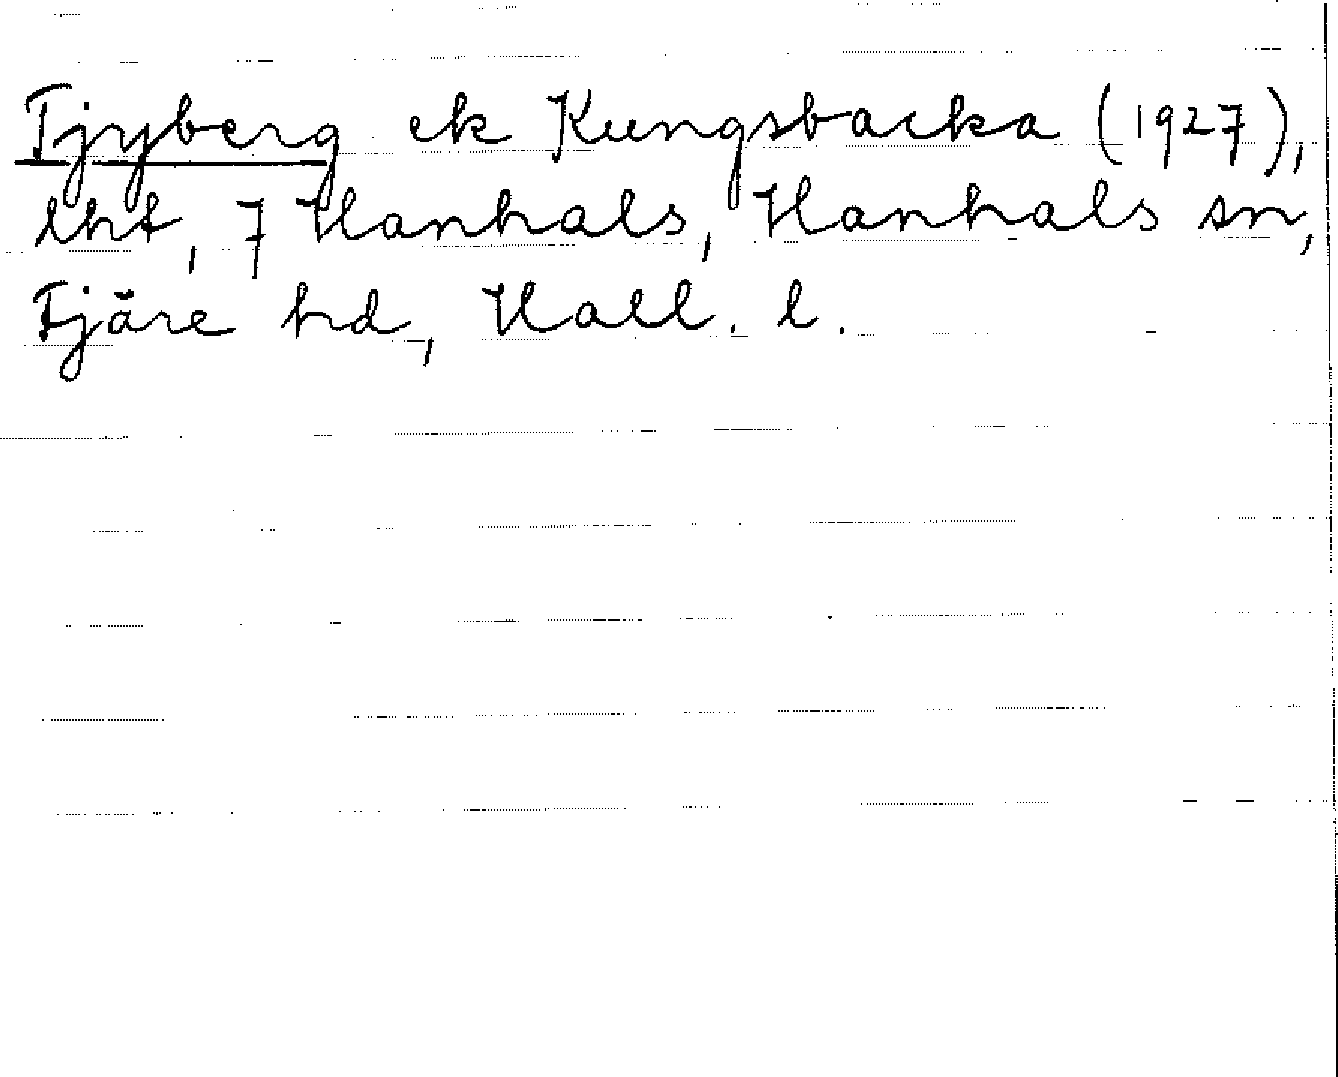 Tjyberg ek Kungsbacka (1927),
lht, 7 Hanhals, Hanhals sn,
Fjäre hd, Hall. l.